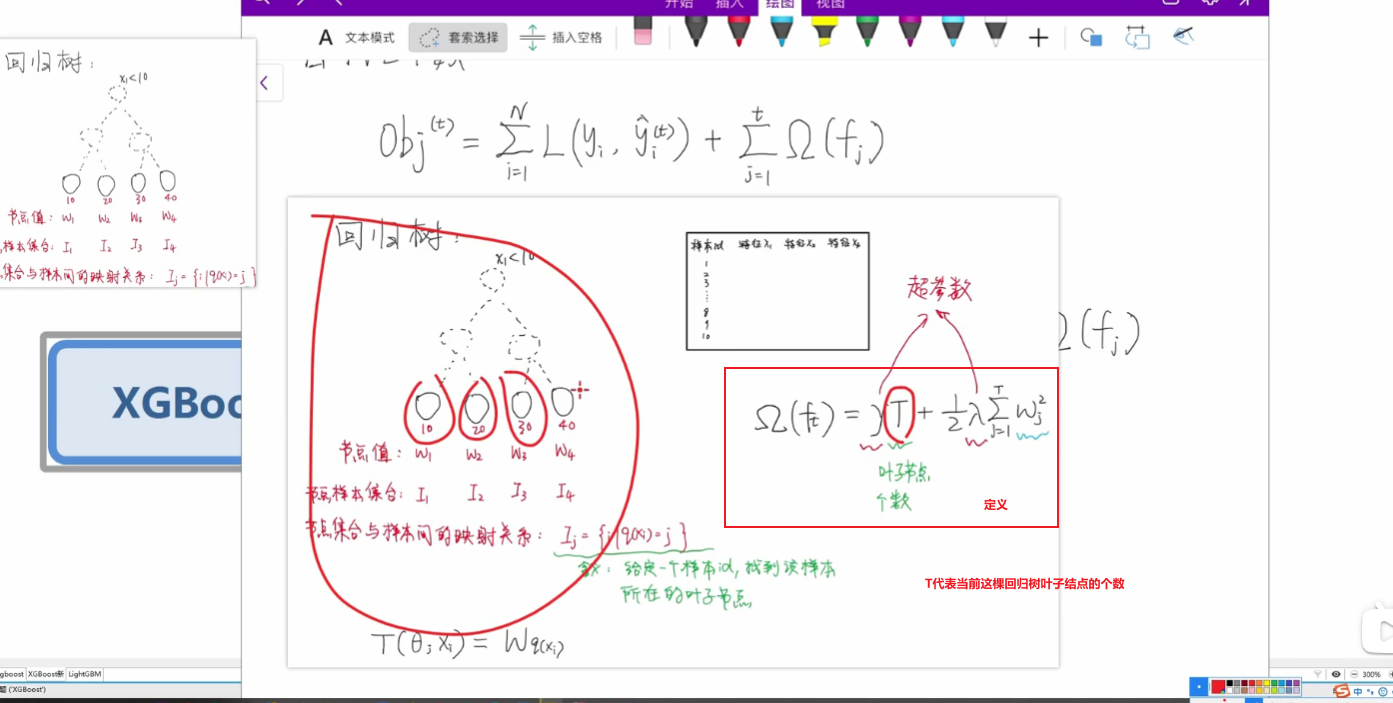 开始 插入 绘图 视图
A 文本模式 套索选择 插入空格
回归树:
x₁<10
10 20 30 40
节点值: W₁ W₂ W₃ W₄
样本集合: I₁ I₂ I₃ I₄
集合与样本间的映射关系: Iⱼ = {i|q(xᵢ)=j}
XGBoo
Obj⁽ᵗ⁾ = Σᵢ₌₁ᴺ L(yᵢ, ŷᵢ⁽ᵗ⁾) + Σⱼ₌₁ᵗ Ω(fⱼ)
Ω(fⱼ)
回归树:
x₁<10
10 20 30 40
节点值: W₁ W₂ W₃ W₄
节点样本集合: I₁ I₂ I₃ I₄
节点集合与样本间的映射关系: Iⱼ = {i|q(xᵢ)=j}
含义: 给定一个样本id, 找到该样本
所在的叶子节点
T(θ; xᵢ) = W_q(xᵢ)
样本id 特征x₁ 特征x₂
1
2
3
⋮
8
9
10
超参数
Ω(fₜ) = γT + ½λ Σⱼ₌₁ᵀ Wⱼ²
叶子节点
个数
定义
T代表当前这棵回归树叶子结点的个数
gboost XGBoost新 LightGBM
题 ('XGBoost')
300%
中